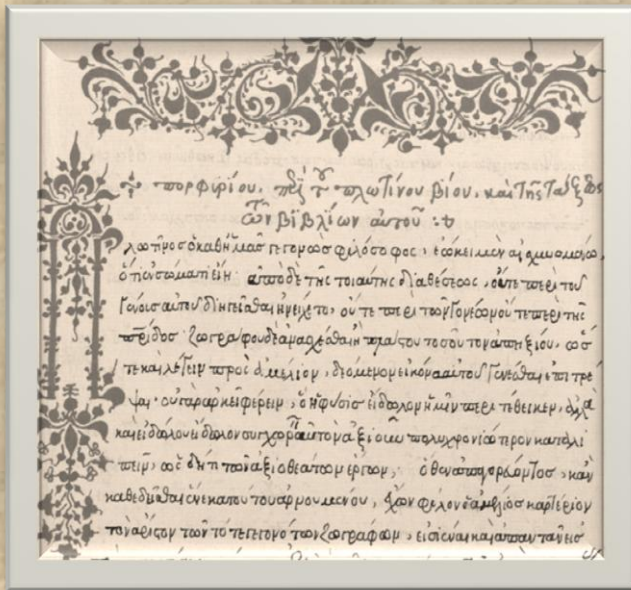 πορφυρίου. περὶ τοῦ πλωτίνου βίου. καὶ τῆς τάξεως
τῶν βιβλίων αὐτοῦ :
Πλωτῖνος ὁ καθ' ἡμᾶς γεγονὼς φιλόσοφος, ἐώκει μὲν αἰσχυνομένω,
ὅτι ἐν σώματι εἴη· ἀπὸ δὲ τῆς τοιαύτης διαθέσεως, οὔτε περὶ τοῦ
γένους αὐτοῦ διηγεῖσθαι ἠνείχετο, οὔτε περὶ τῶν γονέων οὔτε περὶ τῆς
πατρίδος· ζωγράφου δὲ ἀνασχέσθαι ἢ πλάστου τοσοῦτον ἀπηξίου, ὥσ
τε καὶ λέγειν πρὸς ἀμέλιον, δεόμενον εἰκόνα αὐτοῦ γενέσθαι ἐπιτρέ
ψαι· οὐ γὰρ ἀρκεῖ φέρειν, ὃ ἡ φύσις εἴδωλον ἡμῖν περιτέθεικεν, ἀλλὰ
καὶ εἰδώλου εἴδωλον συγχωρεῖν αὐτὸν ἀξιοῦν πολυχρονιώτερον καταλι
πεῖν, ὡς δή τι τῶν ἀξιοθεάτων ἔργων· ὅθεν ἀπαγορεύοντος, καὶ
καθεδεῖσθαι ἕνεκα τούτου ἀρνουμένου, ἔχων φίλον ὁ ἀμέλιος καρτέριον
τὸν ἄριστον τῶν τότε γεγονότων ζωγράφων, εἰσιέναι καὶ ἀπαντᾶν εἰς